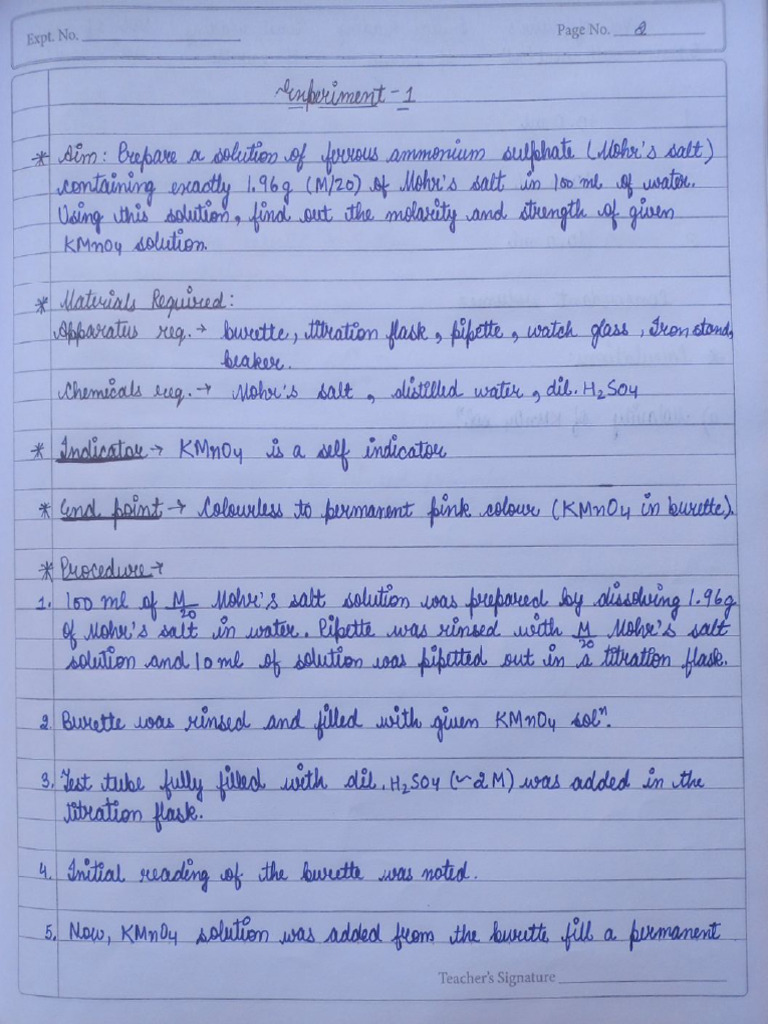 Expt. No.
Page No. 2
Experiment - 1
* Aim: Prepare a solution of ferrous ammonium sulphate (Mohr's salt)
containing exactly 1.96g (M/20) of Mohr's salt in 100 ml of water.
Using this solution, find out the molarity and strength of given
KMnO4 solution.
* Materials Required:
Apparatus req. → burette, titration flask, pipette, watch glass, Iron stand,
beaker.
Chemicals req. → Mohr's salt, distilled water, dil. H2SO4
* Indicator → KMnO4 is a self indicator
* End point → Colourless to permanent pink colour (KMnO4 in burette).
* Procedure →
1. 100 ml of M/20 Mohr's salt solution was prepared by dissolving 1.96g
of Mohr's salt in water. Pipette was rinsed with M/20 Mohr's salt
solution and 10 ml of solution was pipetted out in a titration flask.
2. Burette was rinsed and filled with given KMnO4 solⁿ.
3. Test tube fully filled with dil. H2SO4 (~2M) was added in the
titration flask.
4. Initial reading of the burette was noted.
5. Now, KMnO4 solution was added from the burette fill a permanent
Teacher's Signature